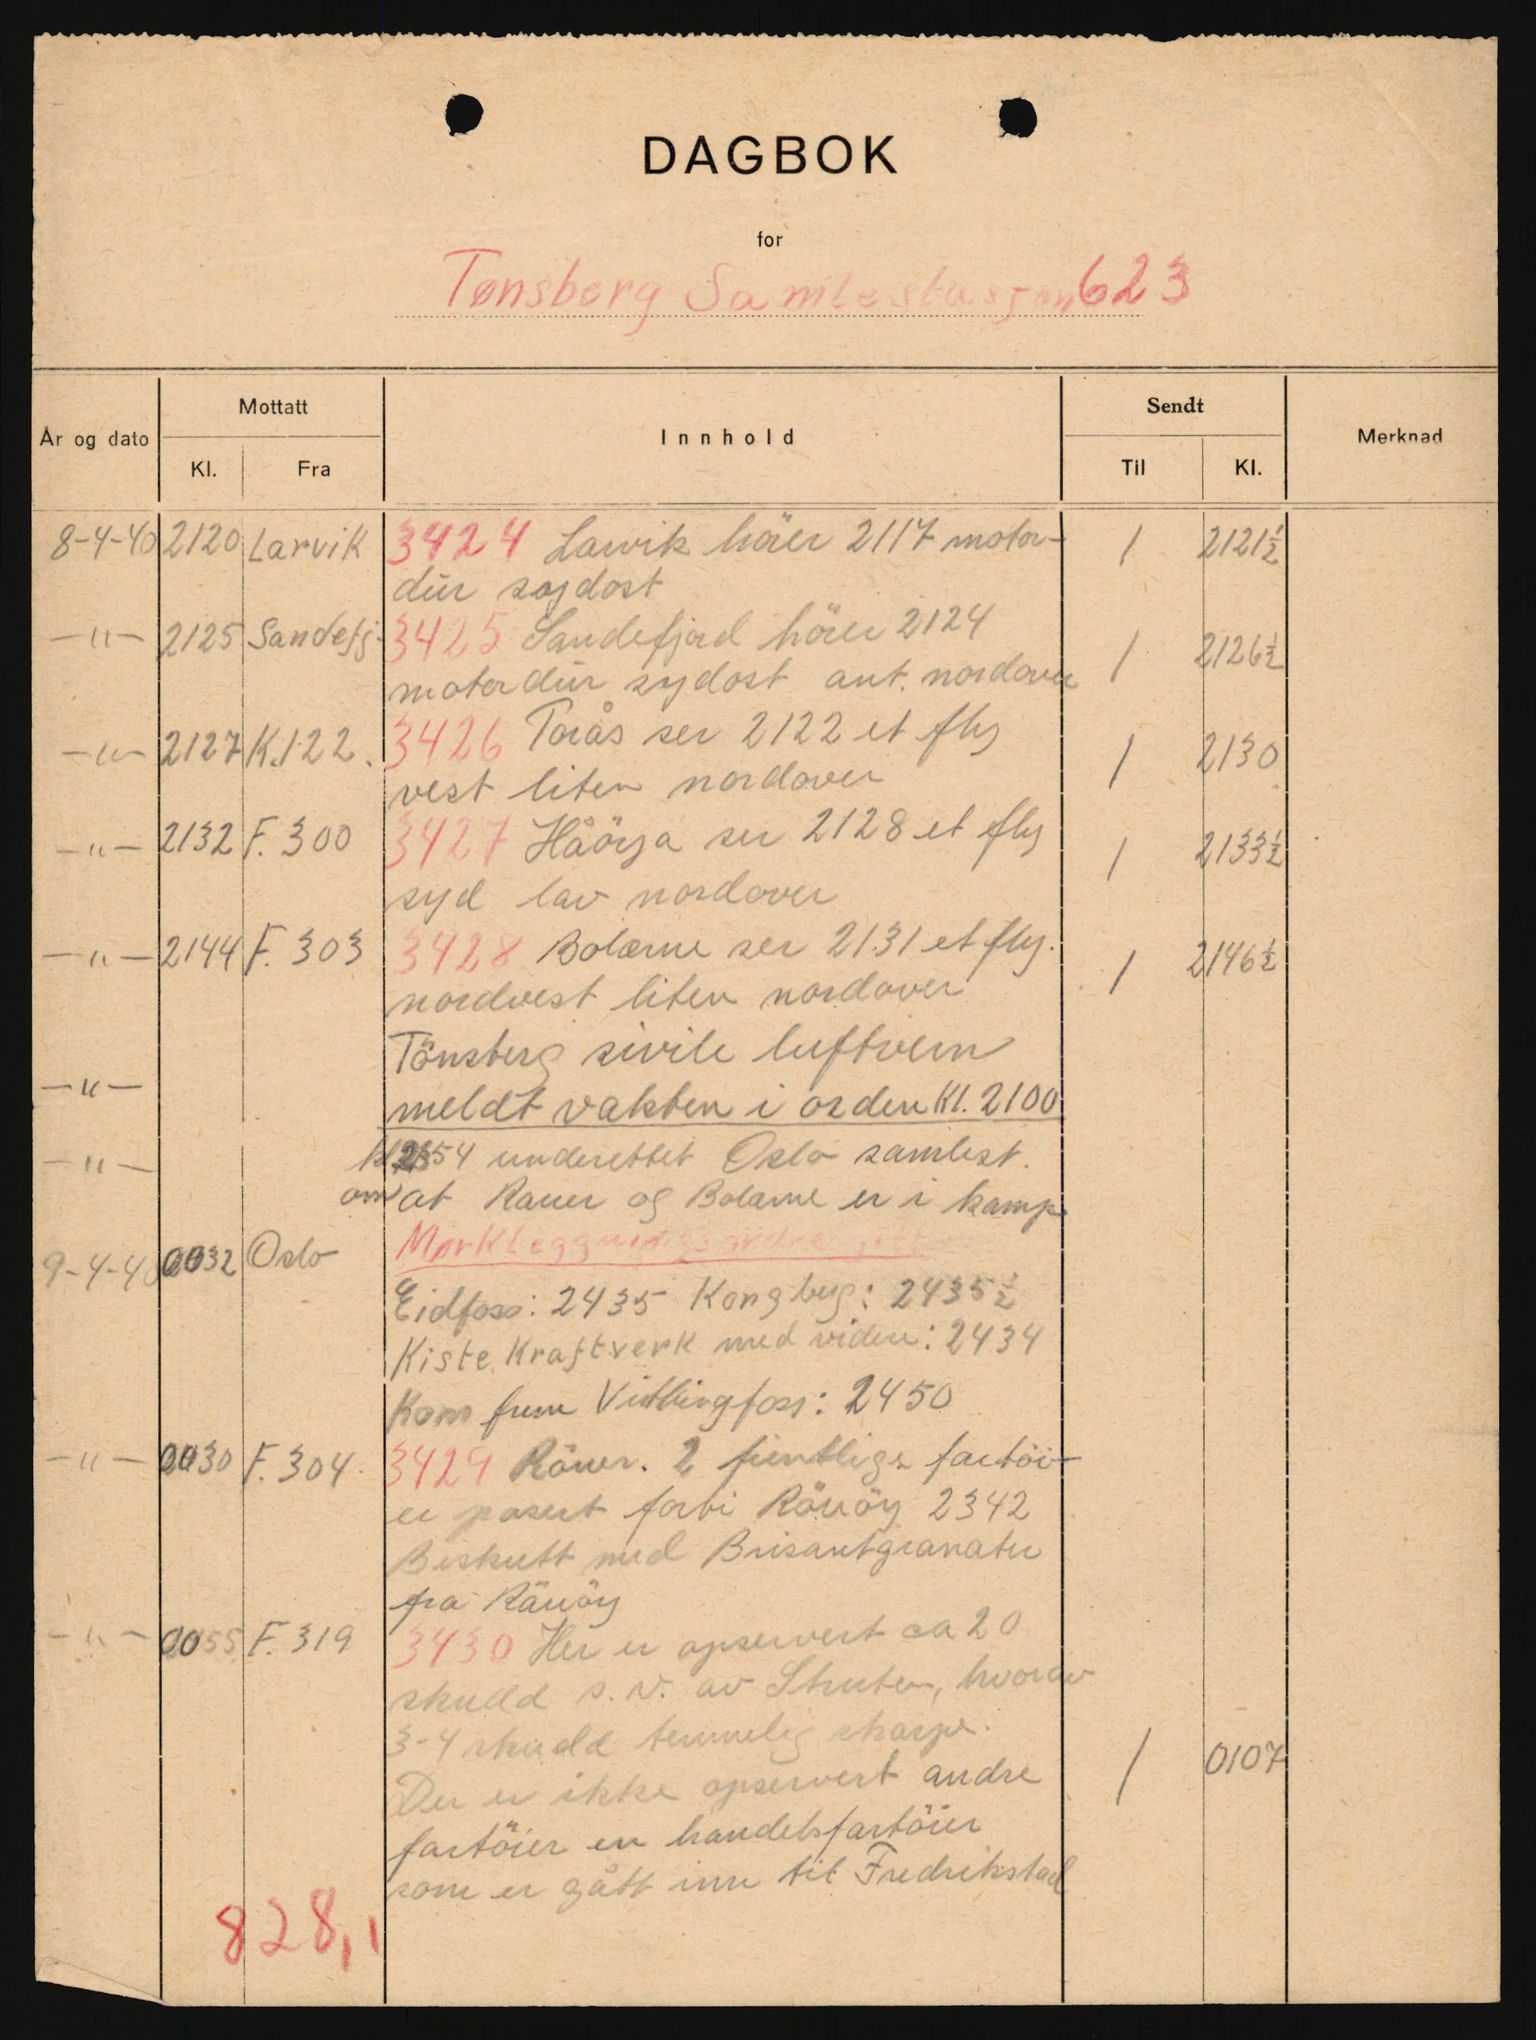 DAGBOK
for
Tønsberg Samlestasjon 623
År og dato Mottatt Innhold Sendt Merknad
Kl. Fra Til Kl.
8-4-40 2120 Larvik 3424 Larvik hörer 2117 motor- 1 2121½
dur sydost
-"- 2125 Sandefj. 3425 Sandefjord hörer 2124 1 2126½
motordur sydost ant. nordover
-"- 2127 K.122. 3426 Torås ser 2122 et fly 1 2130
vest liten nordover
-"- 2132 F. 300 3427 Håöya ser 2128 et fly 1 2133½
syd lav nordover
-"- 2144 F. 303 3428 Bolærne ser 2131 et fly. 1 2146½
nordvest liten nordover
Tönsberg sivile luftvern
-"- meldt vakten i orden Kl. 2100
-"- kl 2354 underettet Oslo samlest.
om at Rauer og Bolærne er i kamp
9-4-40 0032 Oslo Mørkleggningsordre gitt
Eidfoss: 2435 Kongberg: 2435½
Kiste Kraftverk med videre: 2434
Kom frem Vittingfoss: 2450
-"- 0030 F. 304. 3429 Röuer. 2 fientlige fartöi-
er pasert forbi Röuöy 2342
Beskutt med Brisantgranater
fra Räuöy
-"- 0055 F. 319 3430 Her er opservert ca 20
skudd s.v. av Struten, hvorav
3-4 skudd temmelig skarpe.
Der er ikke opservert andre 1 0107
fartöier en handelsfartöier
som er gått inn til Fredrikstad
828,1